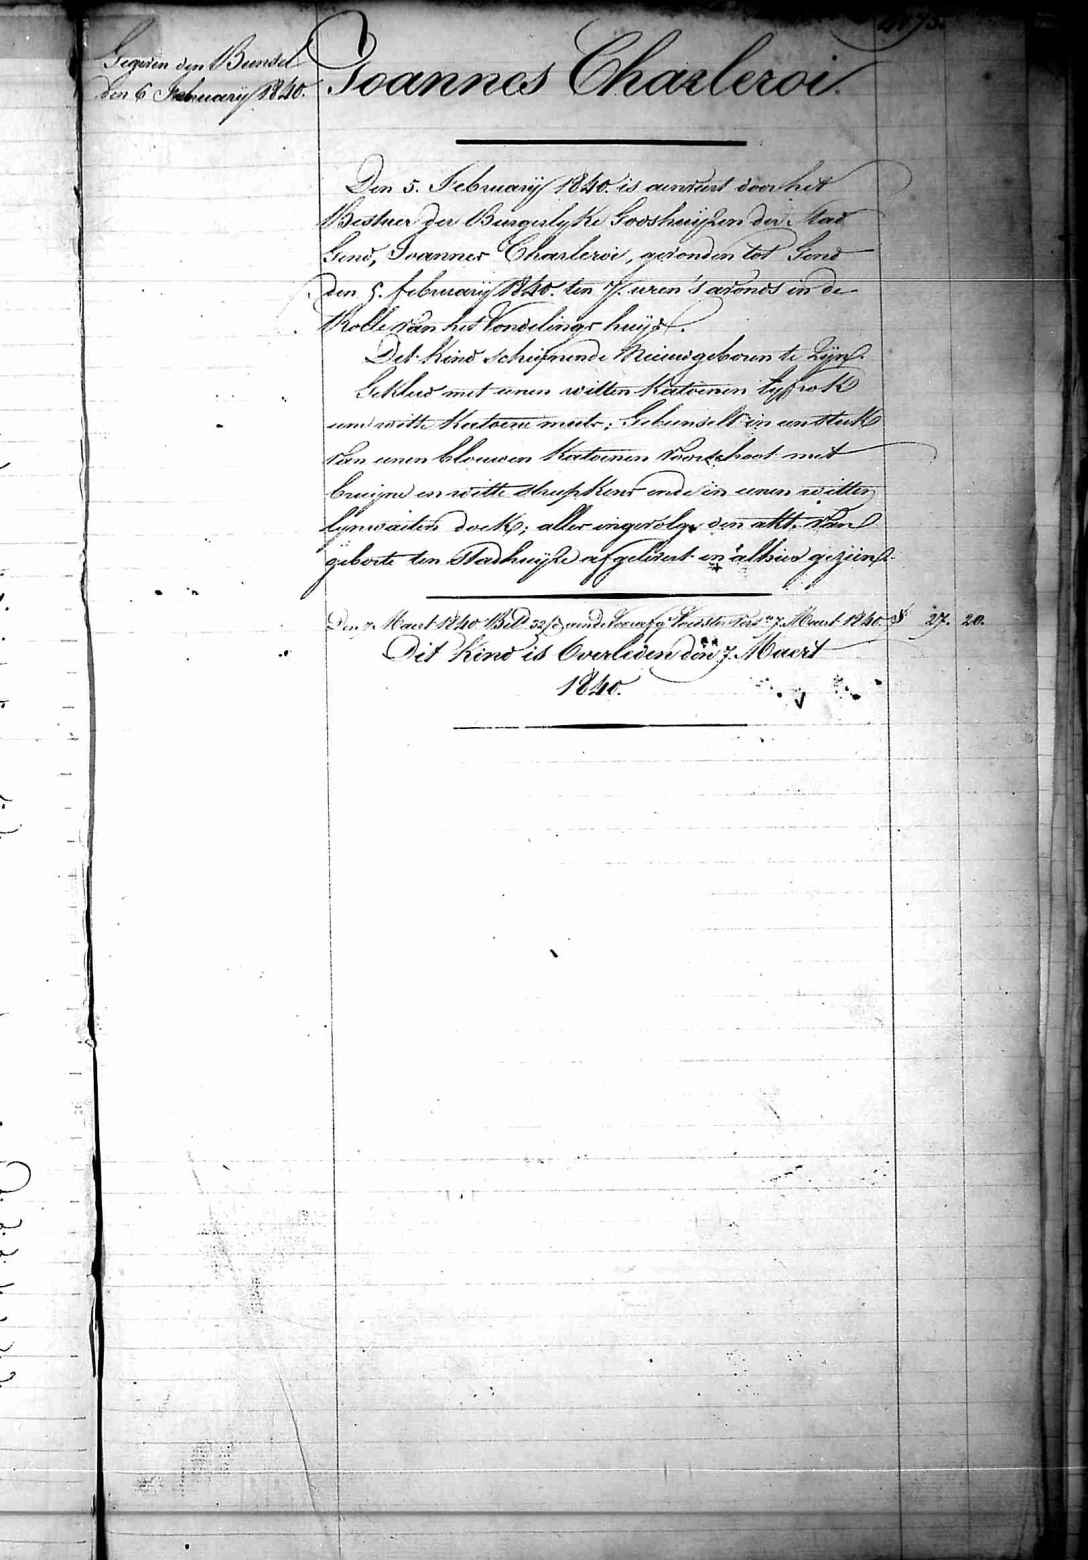 Gegeven den Bundel
den 6 February 1840.
Joannes Charleroi.
Den 5. February 1840. is aenveirt door het
Bestuer der Burgerlyke Godshuyzen der Stad
Gend, Joannes Charleroi, gevonden tot Gend
den 5. february 1840. ten 7. uren 's avonds in de
Rolle van het Vondelings huys.
Det Kind scheynende Nieuwgeboren te Zyn.
Gekleed met eenen witten Katoenen lyfrok
een witte Katoene muts; Gebunselt in een stuk
van eenen blouwen Katoenen voorschoot met
bruyne en witte strepkens ende in eenen witten
lynwaiten doek; alles ingevolge den akt van
geborte ten Stadhuyze afgelevert en alhier gezien.
Den 7 Maert 1840 32 7 Maert 1840 27. 20.
Dit Kind is Overleden den 7. Maert
1840.